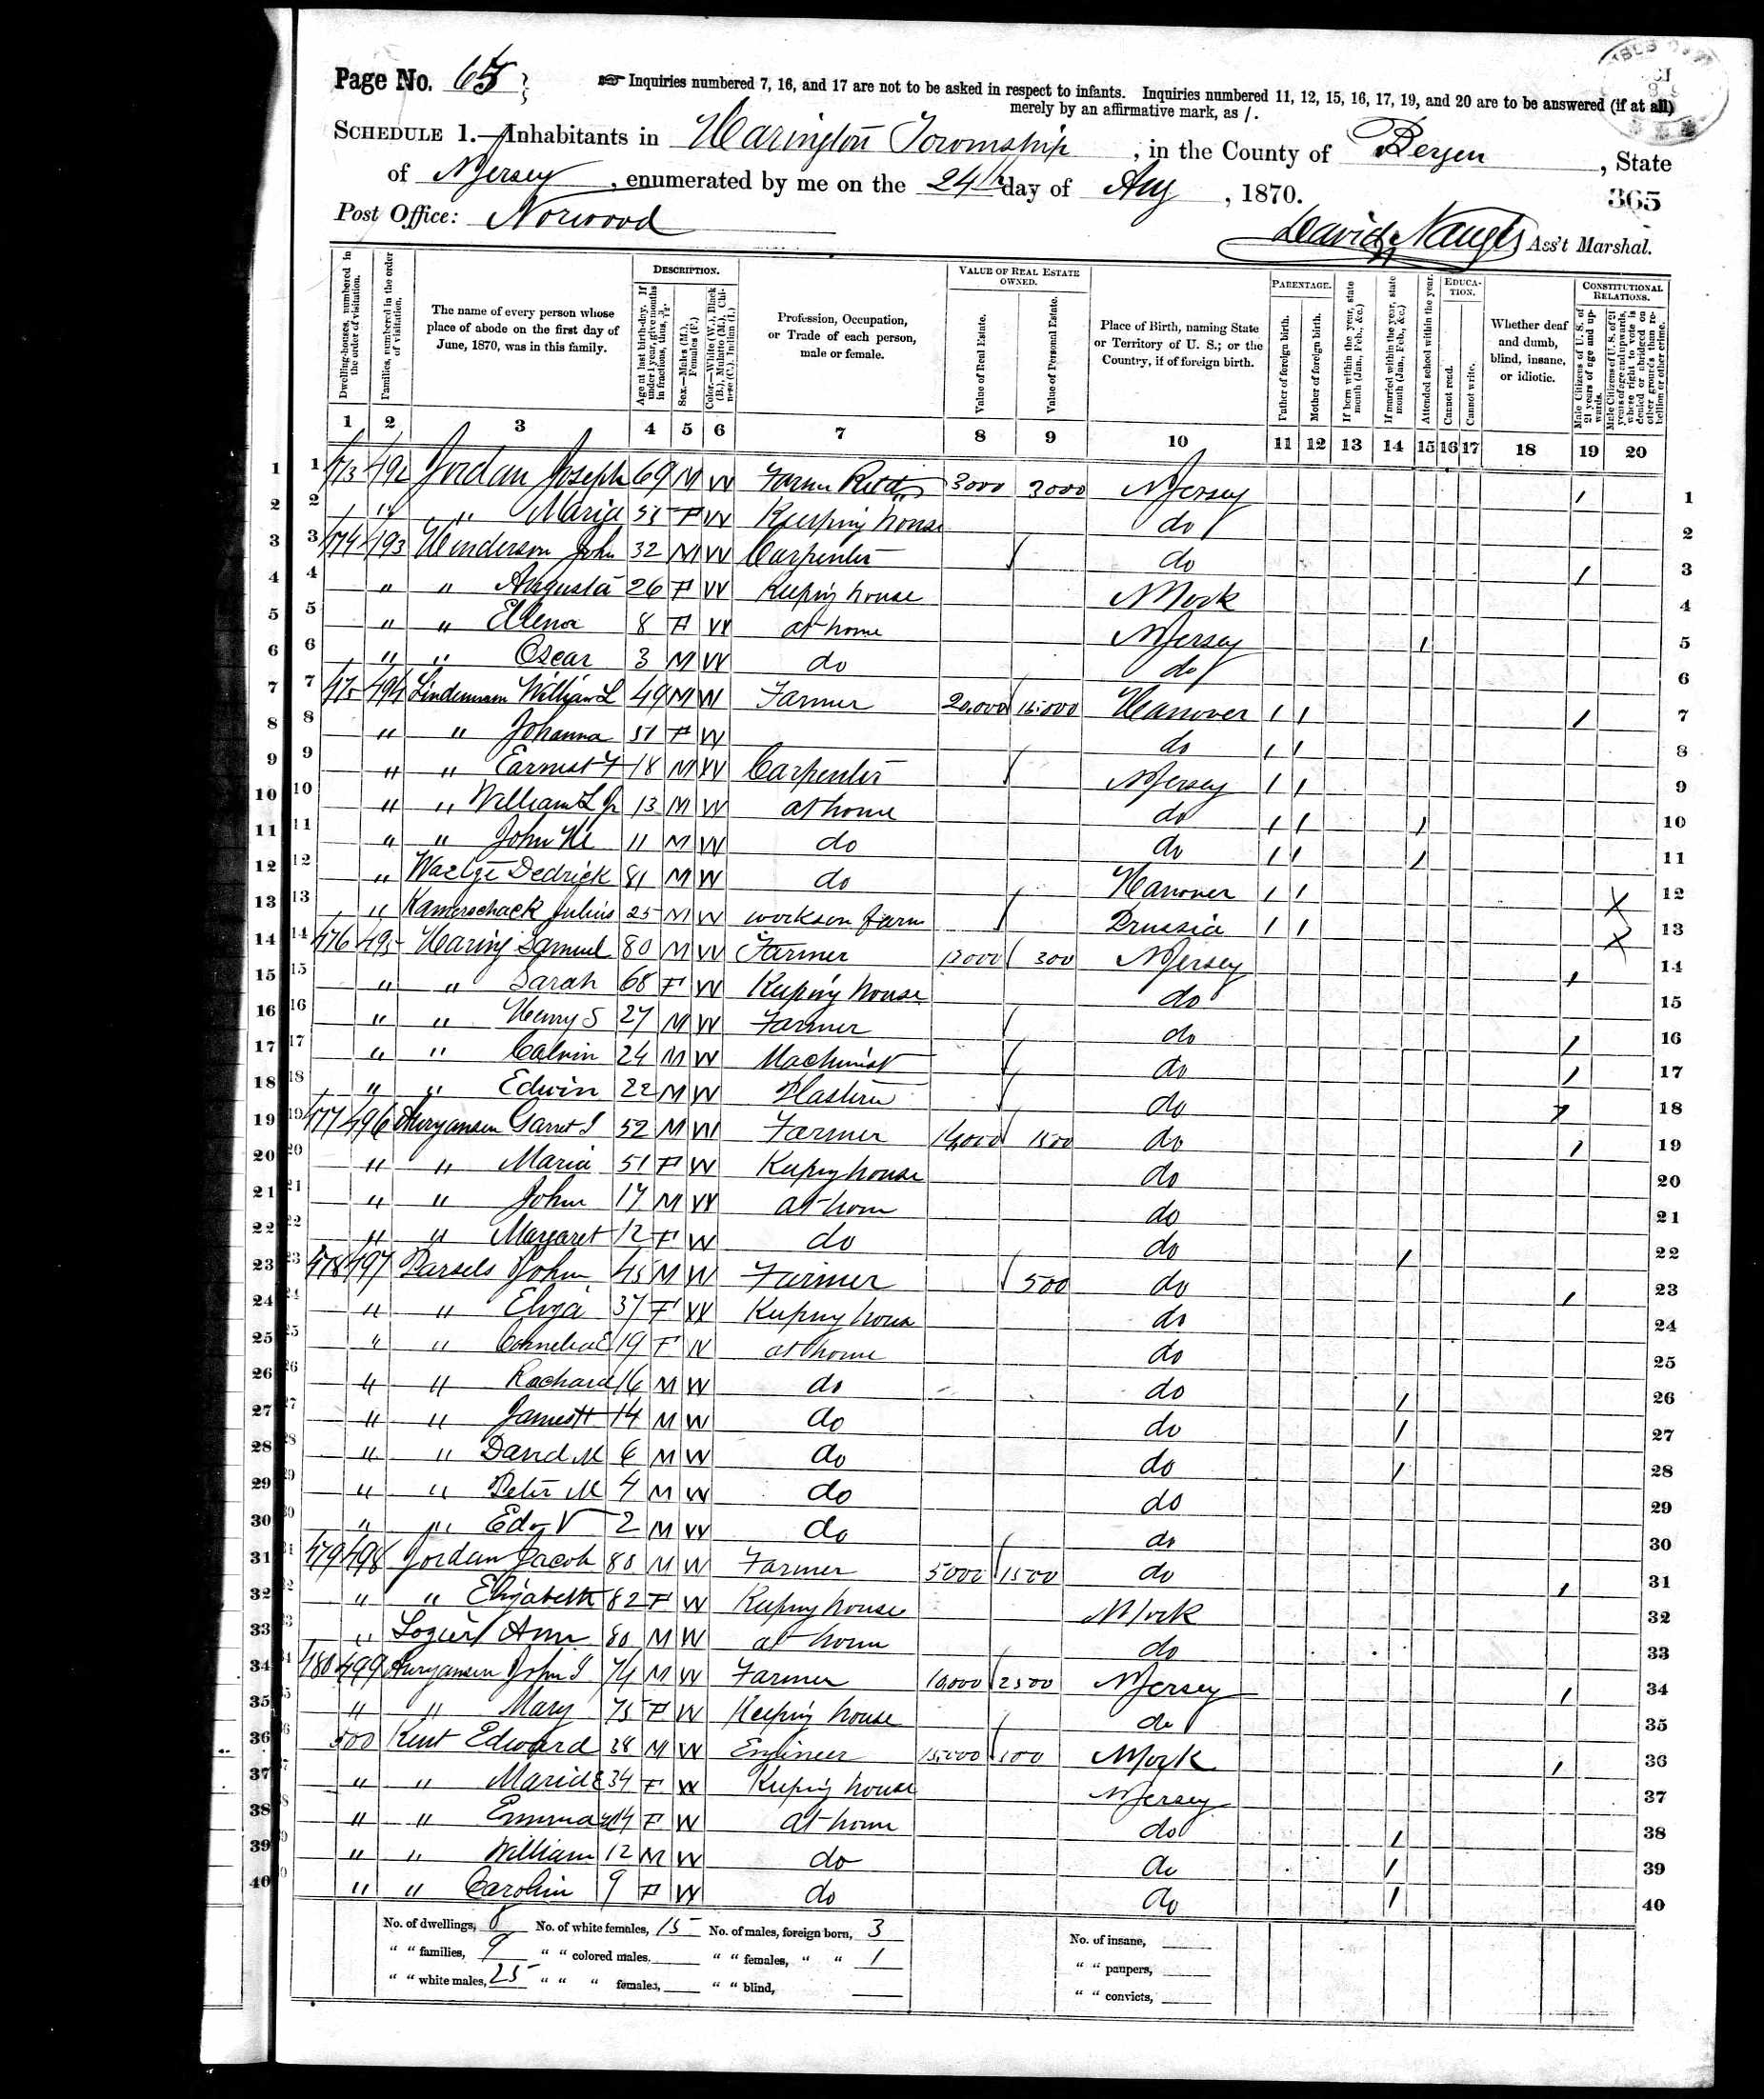 Page No. 65
☞ Inquiries numbered 7, 16, and 17 are not to be asked in respect to infants. Inquiries numbered 11, 12, 15, 16, 17, 19, and 20 are to be answered (if at all)
merely by an affirmative mark, as /.
SCHEDULE 1.—Inhabitants in Harington Township, in the County of Bergen, State
of NJersey, enumerated by me on the 24th day of Aug, 1870.
365
Post Office: Norwood
David Naugle Ass't Marshal.
Dwelling-houses, numbered in the order of visitation.
Families, numbered in the order of visitation.
The name of every person whose place of abode on the first day of June, 1870, was in this family.
DESCRIPTION.
Age at last birth-day. If under 1 year, give months in fractions, thus, 3/12.
Sex.—Males (M.), Females (F.)
Color.—White (W.), Black (B.), Mulatto (M.), Chinese (C.), Indian (I.)
Profession, Occupation, or Trade of each person, male or female.
VALUE OF REAL ESTATE OWNED.
Value of Real Estate.
Value of Personal Estate.
Place of Birth, naming State or Territory of U. S.; or the Country, if of foreign birth.
PARENTAGE.
Father of foreign birth.
Mother of foreign birth.
If born within the year, state month (Jan., Feb., &c.)
If married within the year, state month (Jan., Feb., &c.)
Attended school within the year.
EDUCATION.
Cannot read.
Cannot write.
Whether deaf and dumb, blind, insane, or idiotic.
CONSTITUTIONAL RELATIONS.
Male Citizens of U. S. of 21 years of age and upwards.
Male Citizens of U. S. of 21 years of age and upwards, whose right to vote is denied or abridged on other grounds than rebellion or other crime.
1 2 3 4 5 6 7 8 9 10 11 12 13 14 15 16 17 18 19 20
1 1 473 492 Jordan Joseph 69 M W Farmer Retd 3000 3000 NJersey / 1
2 2 " " Maria 55 F W Keeping house do 2
3 3 474 493 Henderson John 32 M W Carpenter do / 3
4 4 " " Augusta 26 F W Keeping house NYork 4
5 5 " " Ellena 8 F W at home NJersey / 5
6 6 " " Oscar 3 M W do do 6
7 7 475 494 Lindemann William L 49 M W Farmer 20,000 15,000 Hanover / / / 7
8 8 " " Johanna 51 F W do / / 8
9 9 " " Earnest F 18 M W Carpenter NJersey / / 9
10 10 " " William L Jr 13 M W at home do / / / 10
11 11 " " John H 11 M W do do / / / 11
12 12 " Dedrick 81 M W do Hanover / / X 12
13 13 " Kamerschack Julius 25 M W works on farm Prussia / / X 13
14 14 476 495 Haring Samuel 80 M W Farmer 12000 300 NJersey / 14
15 15 " " Sarah 68 F W Keeping house do 15
16 16 " " Henry S 27 M W Farmer do / 16
17 17 " " Calvin 24 M W Machinist do / 17
18 18 " " Edwin 22 M W do / 18
19 19 477 496 Auryansen Garret J 52 M W Farmer 14,000 1500 do / 19
20 20 " " Maria 51 F W Keeping house do 20
21 21 " " John 17 M W at home do 21
22 22 " " Margaret 12 F W do do / 22
23 23 478 497 Parsels John 45 M W Farmer 500 do / 23
24 24 " " Eliza 37 F W Keeping house do 24
25 25 " " Cornelia E 19 F W at home do 25
26 26 " " Rachard 16 M W do do / 26
27 27 " " James H 14 M W do do / 27
28 28 " " David M 6 M W do do / 28
29 29 " " Peter M 4 M W do do 29
30 30 " " Edw V 2 M W do do 30
31 31 479 498 Jordan Jacob 80 M W Farmer 5000 1500 do / 31
32 32 " " Elizabeth 82 F W Keeping house NYork 32
33 33 " Lozier Ann 80 M W at home do 33
34 34 480 499 Auryansen John J 74 M W Farmer 10,000 2500 NJersey / 34
35 35 " " Mary 75 F W Keeping house do 35
36 36 500 Kent Edward 38 M W Engineer 15,000 100 NYork / 36
37 37 " " Maria E 34 F W Keeping house NJersey 37
38 38 " " Emma 14 F W at home do / 38
39 39 " " William 12 M W do do / 39
40 40 " " Carolin 9 F W do do / 40
No. of dwellings, 8 No. of white females, 15 No. of males, foreign born, 3 No. of insane,
" " families, 9 " " colored males, " " females, " " 1 " " paupers,
" " white males, 25 " " " females, " " blind, " " convicts,